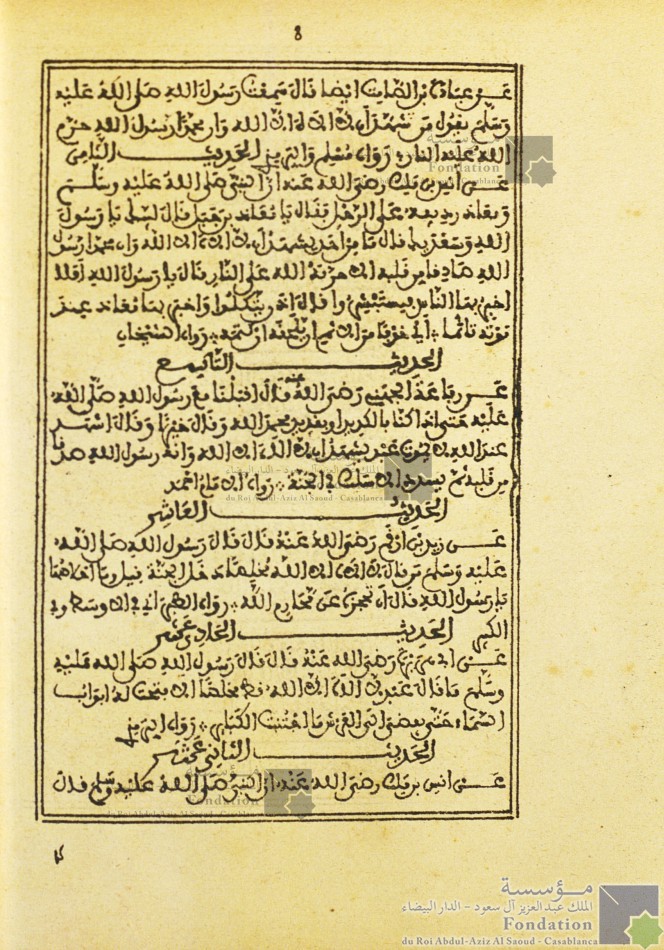 8
عن عبادة بن الصامت ايضا قال سمعت رسول الله صلى الله عليه
وسلم يقول من شهد أن لا اله الا الله وان محمدا رسول الله حرم
الله عليه النار رواه مسلم والترمذي الحديث الثامن
عن انس بن ملك رضي الله عنه أن النبي صلى الله عليه وسلم
ومعاذ رديفه على الرحل فقال يا معاذ بن جبل قال لبيك يا رسول
الله وسعديك قال ما من أحد يشهد أن لا اله الا الله وان محمدا رسول
الله صادقا من قلبه الا حرمه الله على النار قال يا رسول الله افلا
اخبر بها الناس فيستبشروا قال إذا يتكلوا واخبر بها معاذ عند
موته تأثما أي خوفا من الاثم ان كتمه رواه الشيخان
الحديث التاسع
عن رفاعة الجهني رضي الله عنه قال اقبلنا مع رسول الله صلى الله
عليه حتى اذا كنا بالكديد او بقديد فحمد الله وقال خيرا وقال اشهد
عند الله لا يموت عبد يشهد أن لا اله الا الله وانه رسول الله صدقا
من قلبه ثم يسدد الا سلك في الجنة رواه الامام احمد
الحديث العاشر
عن زيد بن ارقم رضي الله عنه قال قال رسول الله صلى الله
عليه وسلم من قال لا اله الا الله مخلصا دخل الجنة قيل وما اخلاصها
يا رسول الله قال أن تحجزه عن محارم الله رواه الطبراني في الاوسط وفي
الكبير الحديث الحادي عشر
عن ابي هريرة رضي الله عنه قال قال رسول الله صلى الله عليه
وسلم ما قال عبد لا اله الا الله قط مخلصا الا فتحت له ابواب
السماء حتى يفضي الى العرش ما اجتنبت الكبائر رواه الترمذي
الحديث الثاني عشر
عن انس بن ملك رضي الله عنه أن النبي صلى الله عليه وسلم قال
مؤسسة
الملك عبد العزيز آل سعود – الدار البيضاء
Fondation
du Roi Abdul-Aziz Al Saoud - Casablanca